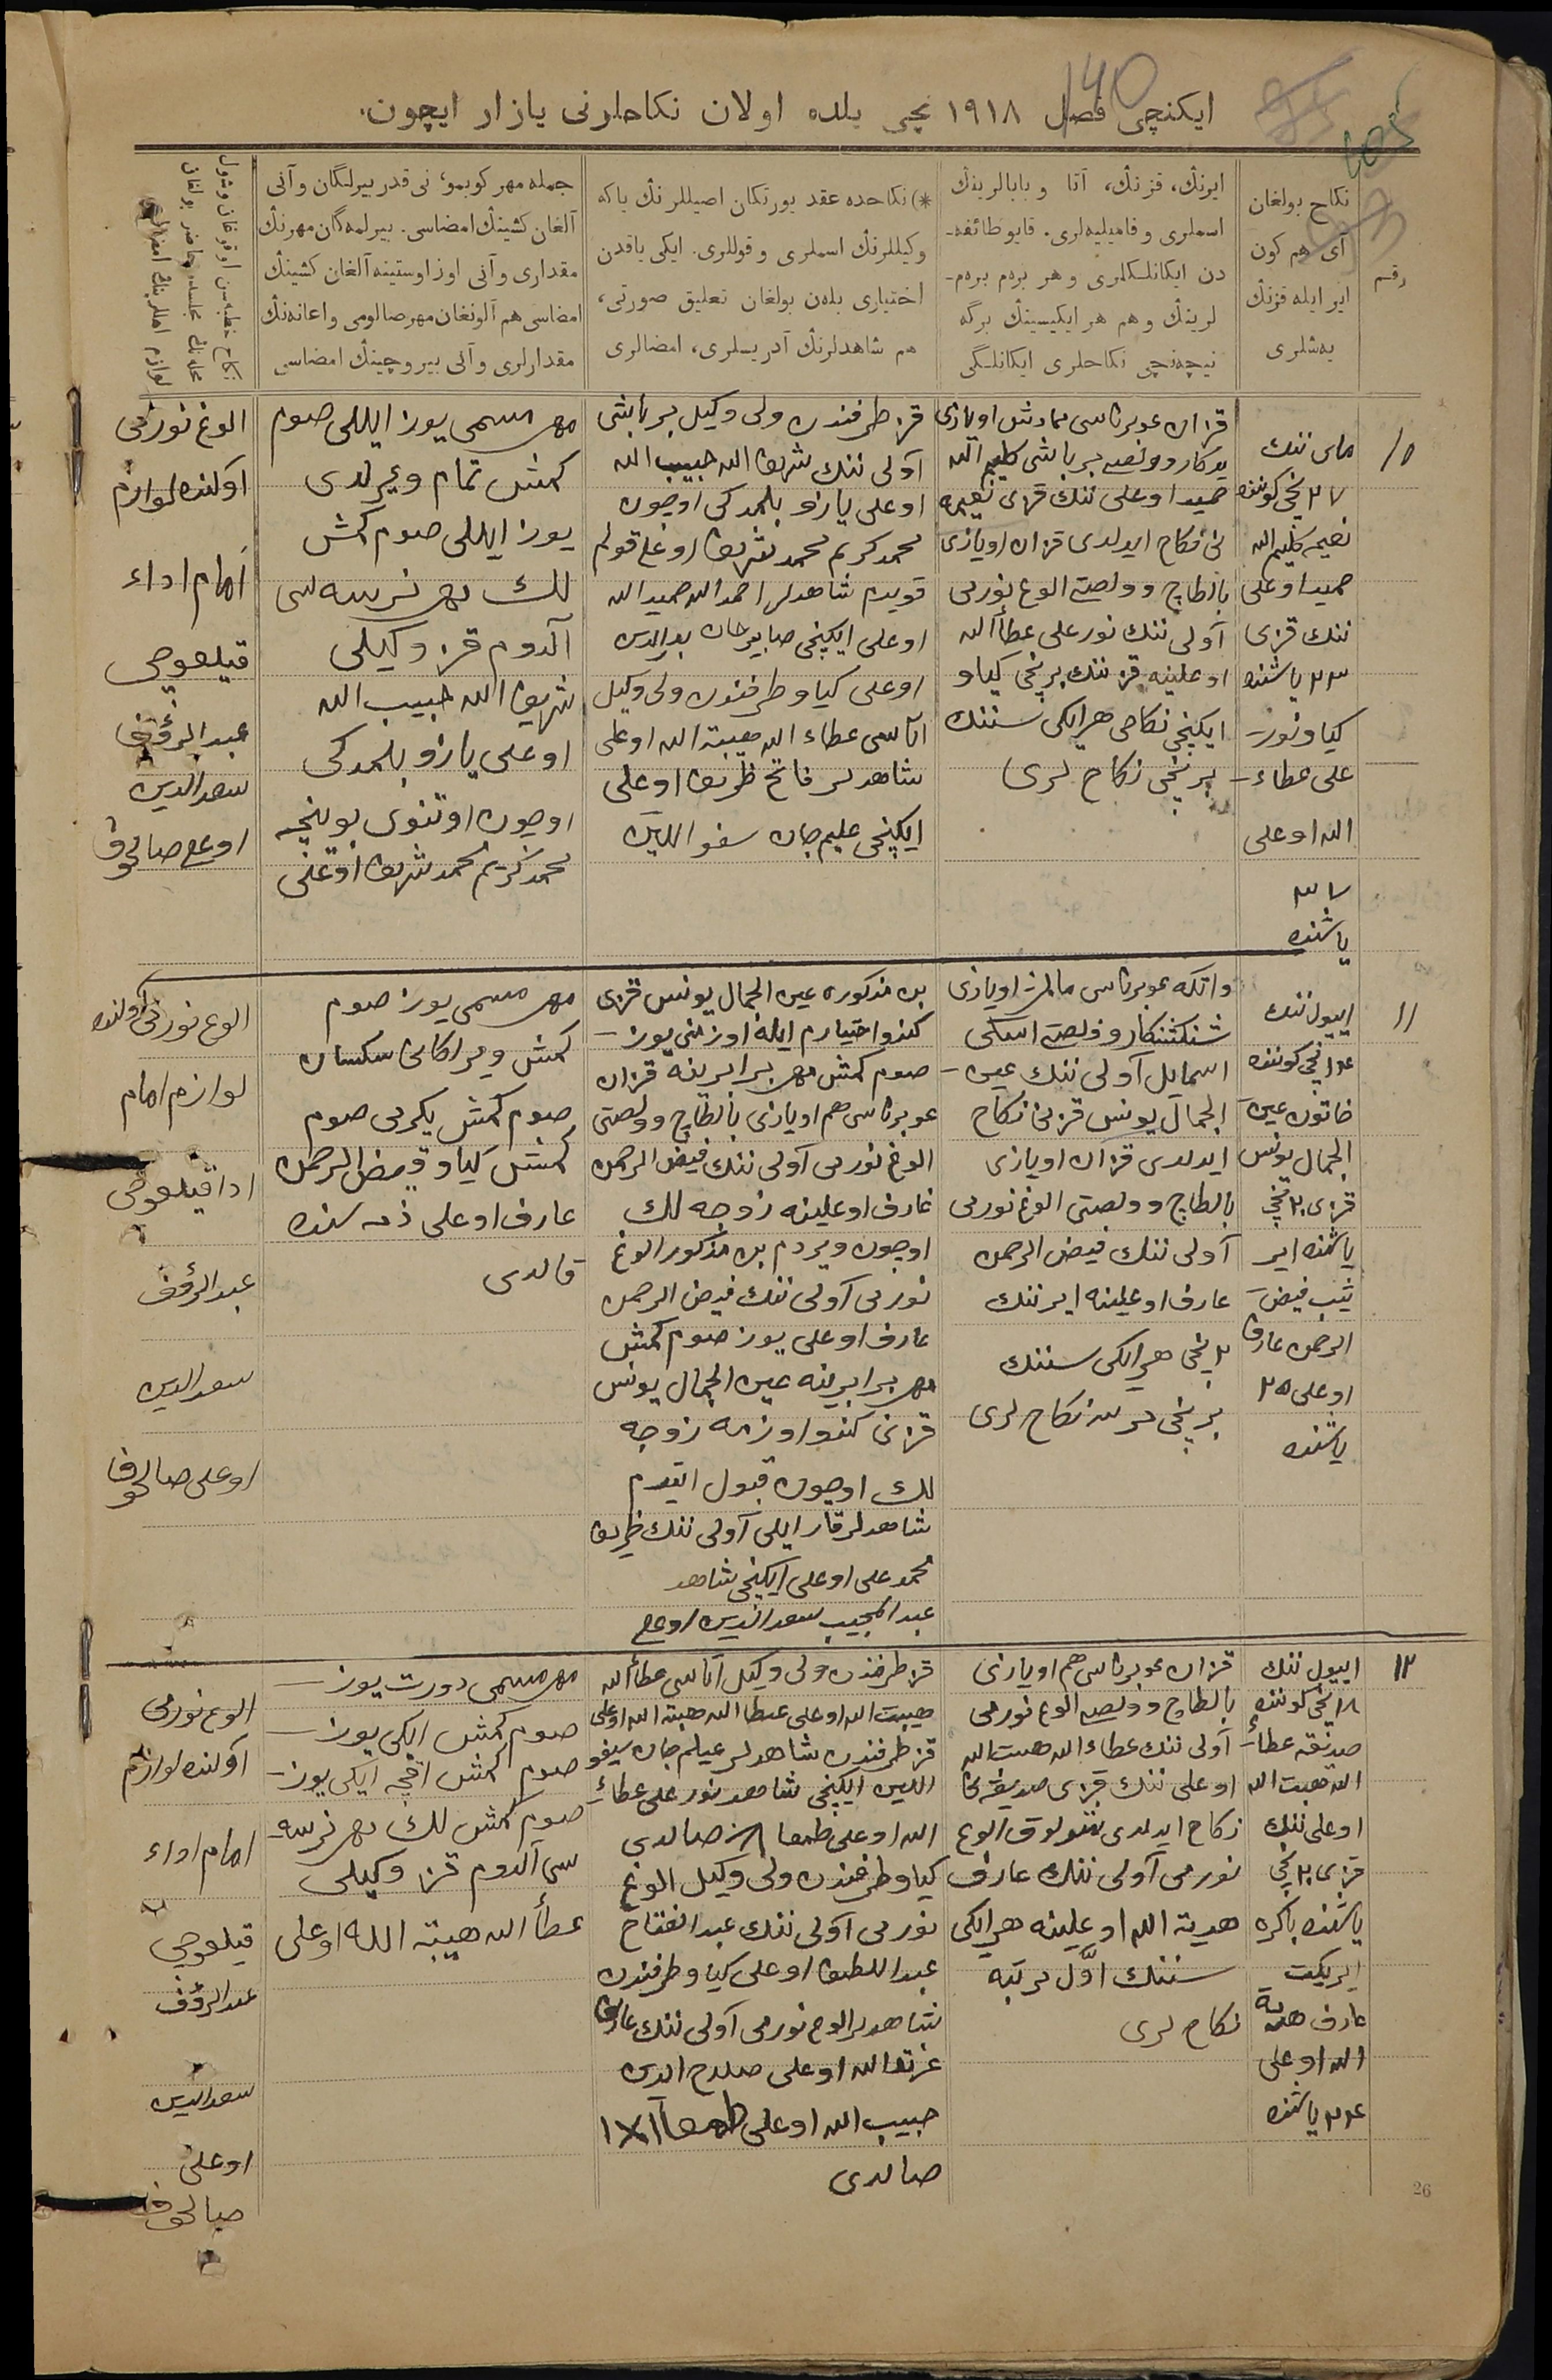 140
ایکنچی فصل ١٩١٨ نچی یلده اولان نکاحلرنی یازار ایچون.
رقم
نکاح بولغان
آی هم کون
ایر ایله قزنڭ
یه‌شلری
ایرنڭ، قزنڭ، آتا و بابالرینڭ
اسملری و فامیلیه‌لری. قایو طائفه‌-
دن ایکانلکلری و هر برەم برەم-
لرینڭ و هم هر ایکیسینڭ برگه
نیچه‌نچی نکاحلری ایکانلگی
*) نکاحده عقد یورتکان اصیللرنڭ یاکه
وکیللرنڭ اسملری و قوللری. ایکی یاقدن
اختیاری بلەن بولغان تعلیق صورتی،
هم شاهدلرنڭ آدریسلری، امضالری
جمله مهر کوبمو، نی قدر بیرلگان و آنی
آلغان کشینڭ امضاسی. بیرلمه‌گان مهرنڭ
مقداری و آنی اوز اوستینه آلغان کشینڭ
امضاسی هم آلونغان مهر صالومی و اعانه‌نڭ
مقدارلری و آلی بیروچینڭ امضاسی
نکاح خطبه‌سن اوقوغان وشول
محله‌نڭ بولغان
١٠
مای ننك
٢٧ نچی کوننده
نعیمه کلیم الله
حمید اوغلی
ننك قزی
٢٣ یاشنده
کیاو نور-
علی عطاء-
الله اوغلی
٣٧
یاشنده
قزان غوبرناسی ممادش اویازی
بر باشی کلیم الله
حمید اوغلی ننك قزی نعیمه
نی نکاح ایدلدی قزان اویازی
بالطاچ وولصتی الوغ نورمی
آولی ننك نور علی عطأالله
اوغلینه قز ننك برنچی کیاو
ایکینچی نکاحی هر ایکی سننك
برنچی نکاح لری
قز طرفندن ولی وکیل بر باشی
آولی ننك شریف الله حبیب الله
اوغلی یازو بلمدکی اوچون
محمد کریم محمد شریف اوغلی قولم
قویدم شاهدلر احمدالله حمیدالله
اوغلی ایکینچی صابیرجان بدرالدین
اوغلی کیاو طرفندن ولی وکیل
اتاسی عطاء الله هیبة الله اوغلی
شاهدلر فاتح ظریف اوغلی
ایکینچی علیم جان سفر الدین
مهر مسمی یوز ایللی صوم
کمش تمام ویرلدی
یوز ایللی صوم کمش
لك مهر نرسه سی
آلدوم قز وکیلی
شریف الله حبیب الله
اوغلی یازو بلمدکی
اوچون اوتنوی بوینچه
محمد کریم محمد شریف اوغلی
الوغ نورمی
آولنده لوازم
امام اداء
قیلغوچی
عبد الرؤف
سعد الدین
اوغلی صالحوف
١١
اییول ننك
١٤ نچی کوننده
خاتون عین
الجمال یونس
قزی ٢٠ نچی
یاشنده ایر
ثیب فیض
الرحمن عارف
اوغلی ٢٥
یاشنده
واتکه غوبرناسی مالمژ اویازی
وولصتی اسکی
اسمایل آولی ننك عین-
الجمال یونس قزنی نکاح
ایدلدی قزان اویازی
بالطاچ وولصتی الوغ نورمی
آولی ننك فیض الرحمن
عارف اوغلینه ایر ننك
٢ نچی هر ایکی سننك
برنچی مرتبه نکاح لری
بن مذکوره عین الجمال یونس قزی
کندو اختیارم ایله اوزمنی یوز-
صوم کمش مهر برابرینه قزان
غوبرناسی هم اویازی بالطاچ وولصتی
الوغ نورمی آولی ننك فیض الرحمن
عارف اوغلینه زوجه لك
اوچون ویردم بن مذکور الوغ
نورمی آولی ننك فیض الرحمن
عارف اوغلی یوز صوم کمش
مهر برابرینه عین الجمال یونس
قزنی کندو اوزمه زوجه
لك اوچون قبول ایتدم
شاهدلر قار ایلی آولی ننك ظریف
محمد علی اوغلی ایکینچی شاهد
عبد المجیب سعد الدین اوغلی
مهر مسمی یوز صوم
کمش ویرلکانی سکسان
صوم کمش یکرمی صوم
کمش کیاو فیض الرحمن
عارف اوغلی ذمه سنده
قالدی
الوغ نورمی آولنده
لوازم امام
ادا قیلغوچی
عبد الرؤف
سعد الدین
اوغلی صالحوف
١٢
اییول ننك
١٨ نچی کوننده
صدیقه عطاء-
الله هیبت الله
اوغلی ننك
قزی ٢٠ نچی
یاشنده باکره
ایر یکت
عارف هدیة
الله اوغلی
٢٤ یاشنده
قزان غوبرناسی هم اویازی
بالطاچ وولصتی الوغ نورمی
آولی ننك عطاء الله هیبت الله
اوغلی ننك قزی صدیقه نی
نکاح ایدلدی شولوق الوغ
نورمی آولی ننك عارف
هدیة الله اوغلینه هر ایکی
سننك اوّل مرتبه
نکاح لری
قز طرفندن ولی وکیل اتاسی عطأالله
هیبت الله اوغلی عطا الله هیبة الله اوغلی
قز طرفندن شاهدلر علیم جان سیفو
الدین ایکینچی شاهد نور علی عطاء-
الله اوغلی طمغا صالدی
کیاو طرفندن ولی وکیل الوغ
نورمی آولی ننك عبد الفتاح
عبد اللطیف اوغلی کیاو طرفندن
شاهدلر الوغ نورمی آولی ننك عارف
عزة الله اوغلی صلاح الدین
حبیب الله اوغلی طمغا IXI
صالدی
مهر مسمی دورت یوز-
صوم کمش ایکی یوز-
صوم کمش اقچه ایکی یوز-
صوم کمش لك مهر نرسه-
سی آلدوم قز وکیلی
عطأ الله هیبة الله اوغلی
الوغ نورمی
آولنده لوازم
امام اداء
قیلغوچی
عبد الرؤف
سعد الدین
اوغلی
صالحوف
26